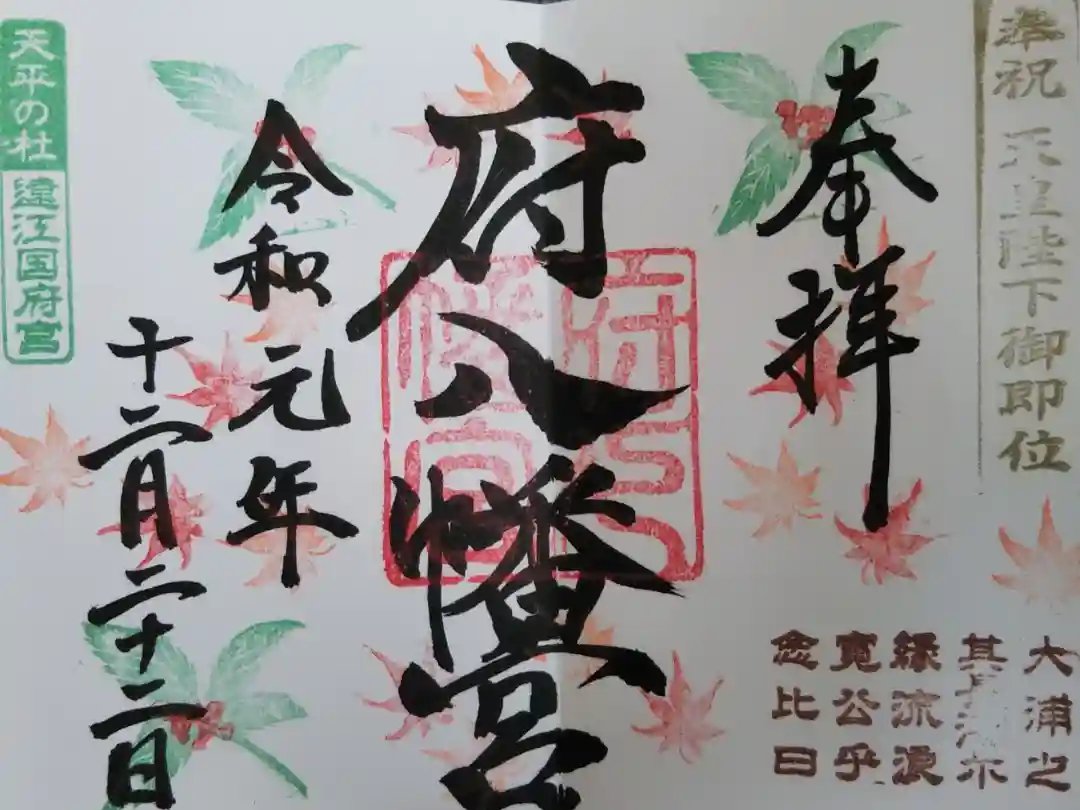 奉祝 天皇陛下御即位
奉拝
府八幡宮
府八
幡宮
令和元年
十二月二十二日
天平の杜
遠江国府宮
大浦之
其長尓
縁流浪
寛公乎
念比日